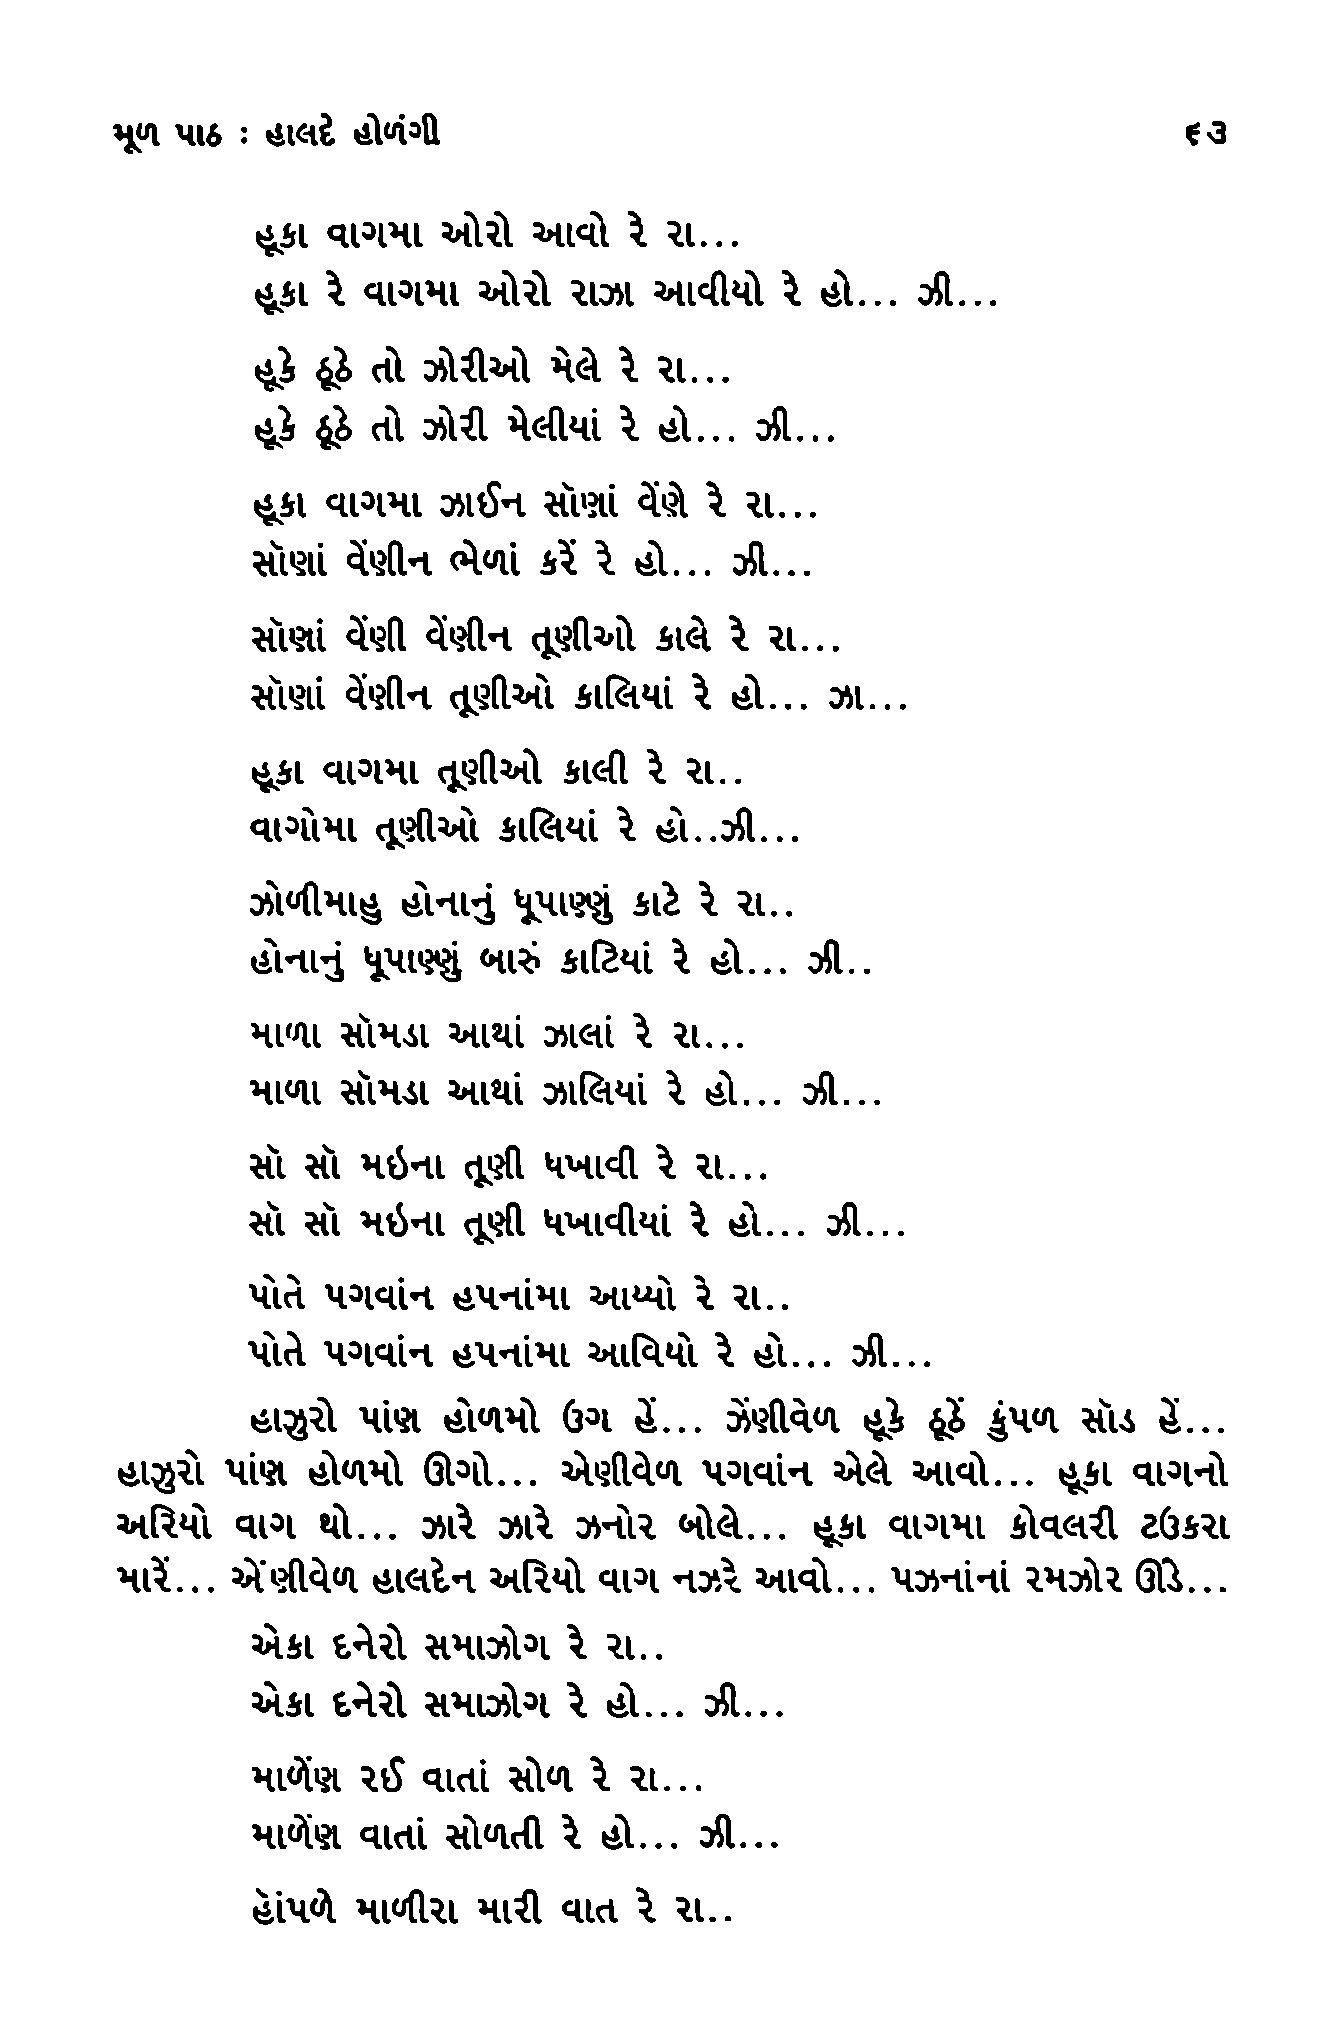 મૂળ પાઠ : હાલદે હોળંગી ૬૩
હૂકા વાગમા ઓરો આવો રે રા...
હૂકા રે વાગમા ઓરો રાઝા આવીયો રે હો... ઝી...
હૂકે ઠૂઠે તો ઝોરીઓ મેલે રે રા...
હૂકે ઠૂઠે તો ઝોરી મેલીયાં રે હો... ઝી...
હૂકા વાગમા ઝાઈન સૉણાં વેંણે રે રા...
સૉણાં વેંણીન ભેળાં કરેં રે હો... ઝી...
સૉણાં વેંણી વેંણીન તૂણીઓ કાલે રે રા...
સૉણાં વેંણીન તૂણીઓ કાલિયાં રે હો... ઝા...
હૂકા વાગમા તૂણીઓ કાલી રે રા..
વાગોમા તૂણીઓ કાલિયાં રે હો..ઝી...
ઝોળીમાહુ હોનાનું ધૂપાણ્ણું કાટે રે રા..
હોનાનું ધૂપાણ્ણું બારું કાટિયાં રે હો... ઝી..
માળા સૉમડા આથાં ઝાલાં રે રા...
માળા સૉમડા આથાં ઝાલિયાં રે હો... ઝી...
સૉ સૉ મઇના તૂણી ધખાવી રે રા...
સૉ સૉ મઇના તૂણી ધખાવીયાં રે હો... ઝી...
પોતે પગવાંન હપનાંમા આય્યો રે રા..
પોતે પગવાંન હપનાંમા આવિયો રે હો... ઝી...
હાઝુરો પાંણ હોળમો ઉગ હેં... ઝેંણીવેળ હૂકે ઠૂઠેં કુંપળ સૉડ હેં...
હાઝુરો પાંણ હોળમો ઊગો... એણીવેળ પગવાંન એલે આવો... હૂકા વાગનો
અરિયો વાગ થો... ઝારે ઝારે ઝનોર બોલે... હૂકા વાગમા કોવલરી ટઉકરા
મારેં... એંણીવેળ હાલદેન અરિયો વાગ નઝરે આવો... પઝનાંનાં રમઝોર ઊંડે...
એકા દનેરો સમાઝોગ રે રા..
એકા દનેરો સમાઝોગ રે હો... ઝી...
માળેંણ રઈ વાતાં સોળ રે રા...
માળેંણ વાતાં સોળતી રે હો... ઝી...
હૅાંપળે માળીરા મારી વાત રે રા..